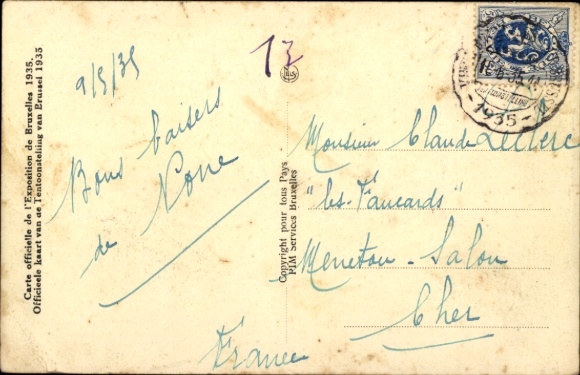 Carte officielle de l'Exposition de Bruxelles 1935.
Officieele kaart van de Tentoonstelling van Brussel 1935
9/5/35
Bons baisers
de
Copyright pour tous Pays
PIM Services Bruxelles
13
1935
Monsieur Claude Leclerc
"les
Menetou-Salon
Cher
France